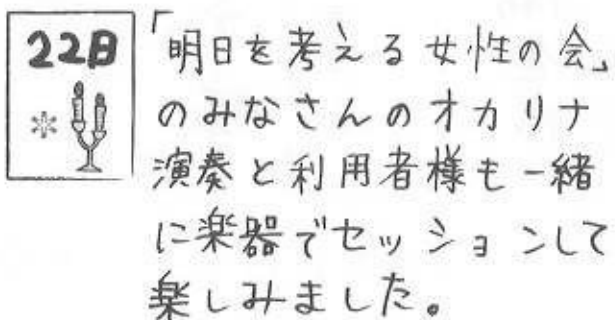 22日
「明日を考える女性の会」
のみなさんのオカリナ
演奏と利用者様も一緒
に楽器でセッションして
楽しみました。